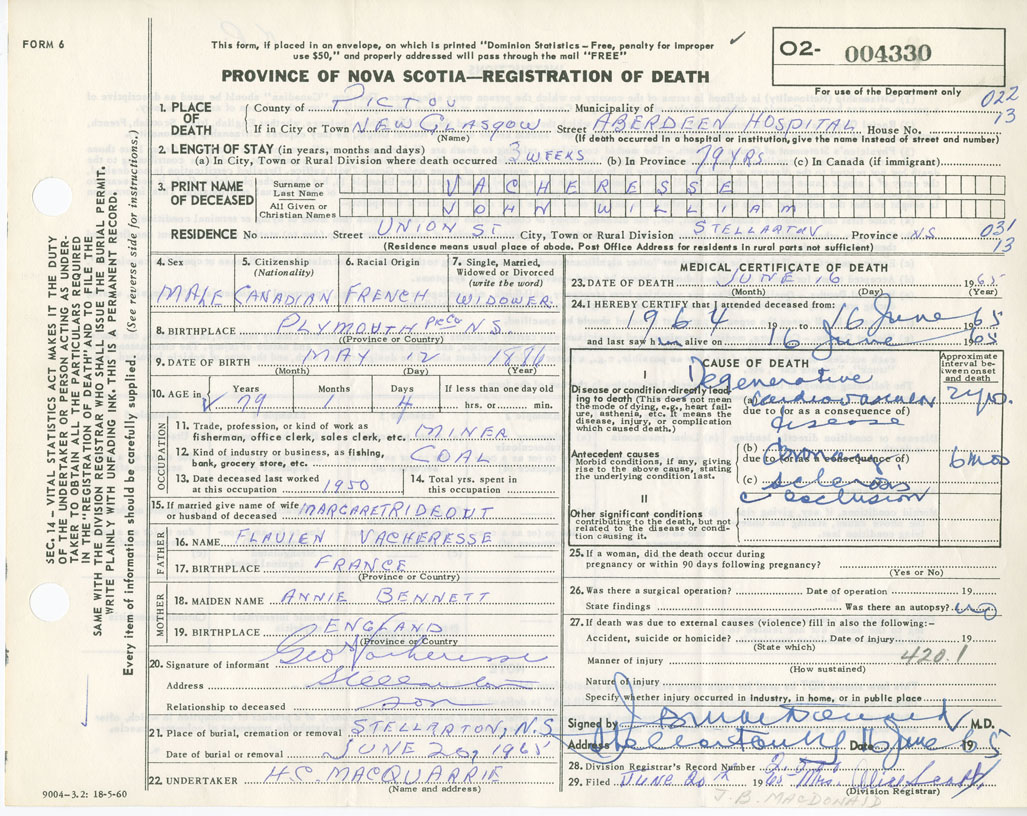 FORM 6
This form, if placed in an envelope, on which is printed "Dominion Statistics – Free, penalty for improper
use $50," and properly addressed will pass through the mail "FREE"
O2- 004330
PROVINCE OF NOVA SCOTIA—REGISTRATION OF DEATH
For use of the Department only
022
13
1. PLACE OF DEATH
County of PICTOU Municipality of
If in City or Town NEW GLASGOW Street ABERDEEN HOSPITAL House No.
(Name) (If death occurred in hospital or institution, give the name instead of street and number)
2. LENGTH OF STAY (in years, months and days)
(a) In City, Town or Rural Division where death occurred 3 WEEKS (b) In Province 79 YRS (c) In Canada (if immigrant)
3. PRINT NAME OF DECEASED
Surname or Last Name VACHERESSE
All Given or Christian Names JOHN WILLIAM
RESIDENCE No Street UNION ST City, Town or Rural Division STELLARTON Province N.S.
031
13
(Residence means usual place of abode. Post Office Address for residents in rural parts not sufficient)
4. Sex MALE
5. Citizenship (Nationality) CANADIAN
6. Racial Origin FRENCH
7. Single, Married, Widowed or Divorced (write the word) WIDOWER
8. BIRTHPLACE PLYMOUTH Pic Co N.S.
(Province or Country)
9. DATE OF BIRTH MAY 12 1886
(Month) (Day) (Year)
10. AGE in Years 79 Months 1 Days 4 If less than one day old
hrs. or min.
OCCUPATION
11. Trade, profession, or kind of work as
fisherman, office clerk, sales clerk, etc. MINER
12. Kind of industry or business, as fishing,
bank, grocery store, etc. COAL
13. Date deceased last worked
at this occupation 1950
14. Total yrs. spent in
this occupation
15. If married give name of wife
or husband of deceased MARGARET RIDEOUT
FATHER
16. NAME FLAVIEN VACHERESSE
17. BIRTHPLACE FRANCE
(Province or Country)
MOTHER
18. MAIDEN NAME ANNIE BENNETT
19. BIRTHPLACE ENGLAND
(Province or Country
20. Signature of informant Geo Vacheresse
Address Stellarton
Relationship to deceased son
21. Place of burial, cremation or removal STELLARTON, N.S
Date of burial or removal JUNE 20, 1965
22. UNDERTAKER H.C. MACQUARRIE
(Name and address)
MEDICAL CERTIFICATE OF DEATH
23. DATE OF DEATH JUNE 16 1965
(Month) (Day) (Year)
24. I HEREBY CERTIFY that I attended deceased from:
1964 19 to 16 June 1965
and last saw him alive on 16 June 1965
CAUSE OF DEATH
Approximate interval between onset and death
I
Disease or condition directly leading to death (This does not mean the mode of dying, e.g., heart failure, asthenia, etc. It means the disease, injury, or complication which caused death.)
Degenerative
(a) cardiovascular
due to (or as a consequence of)
disease
2 yrs.
Antecedent causes
Morbid conditions, if any, giving rise to the above cause, stating the underlying condition last.
(b) coronary
due to (or as a consequence of)
(c) sclerosis
c occlusion
6 mos
II
Other significant conditions
contributing to the death, but not related to the disease or condition causing it.
25. If a woman, did the death occur during
pregnancy or within 90 days following pregnancy?
(Yes or No)
26. Was there a surgical operation? Date of operation 19
State findings Was there an autopsy? no
27. If death was due to external causes (violence) fill in also the following:–
Accident, suicide or homicide? Date of injury 19
(State which)
420.1
Manner of injury
(How sustained)
Nature of injury
Specify whether injury occurred in industry, in home, or in public place
Signed by M.D.
Address Stellarton NS Date 16 June 1965
28. Division Registrar's Record Number
29. Filed JUNE 20th 1965 Mrs. Alice Scott
(Division Registrar)
J.B. MACDONALD
9004-3.2: 18-5-60
SEC. 14 – VITAL STATISTICS ACT MAKES IT THE DUTY
OF THE UNDERTAKER OR PERSON ACTING AS UNDER-
TAKER TO OBTAIN ALL THE PARTICULARS REQUIRED
IN THE "REGISTRATION OF DEATH" AND TO FILE THE
SAME WITH THE DIVISION REGISTRAR WHO SHALL ISSUE THE BURIAL PERMIT.
WRITE PLAINLY WITH UNFADING INK. THIS IS A PERMANENT RECORD.
Every item of information should be carefully supplied. (See reverse side for instructions.)